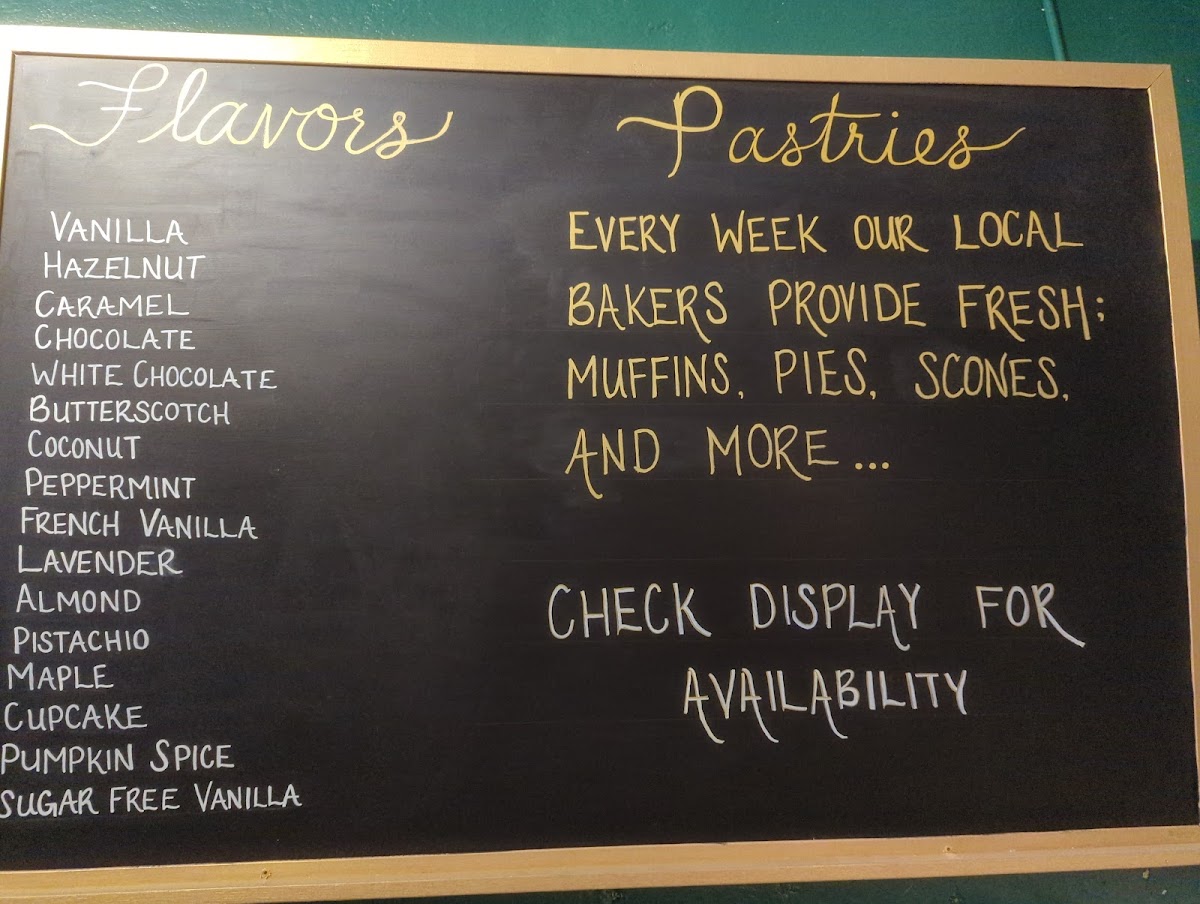 Flavors
VANILLA
HAZELNUT
CARAMEL
CHOCOLATE
WHITE CHOCOLATE
BUTTERSCOTCH
COCONUT
PEPPERMINT
FRENCH VANILLA
LAVENDER
ALMOND
PISTACHIO
MAPLE
CUPCAKE
PUMPKIN SPICE
SUGAR FREE VANILLA
Pastries
EVERY WEEK OUR LOCAL
BAKERS PROVIDE FRESH;
MUFFINS, PIES, SCONES,
AND MORE...
CHECK DISPLAY FOR
AVAILABILITY